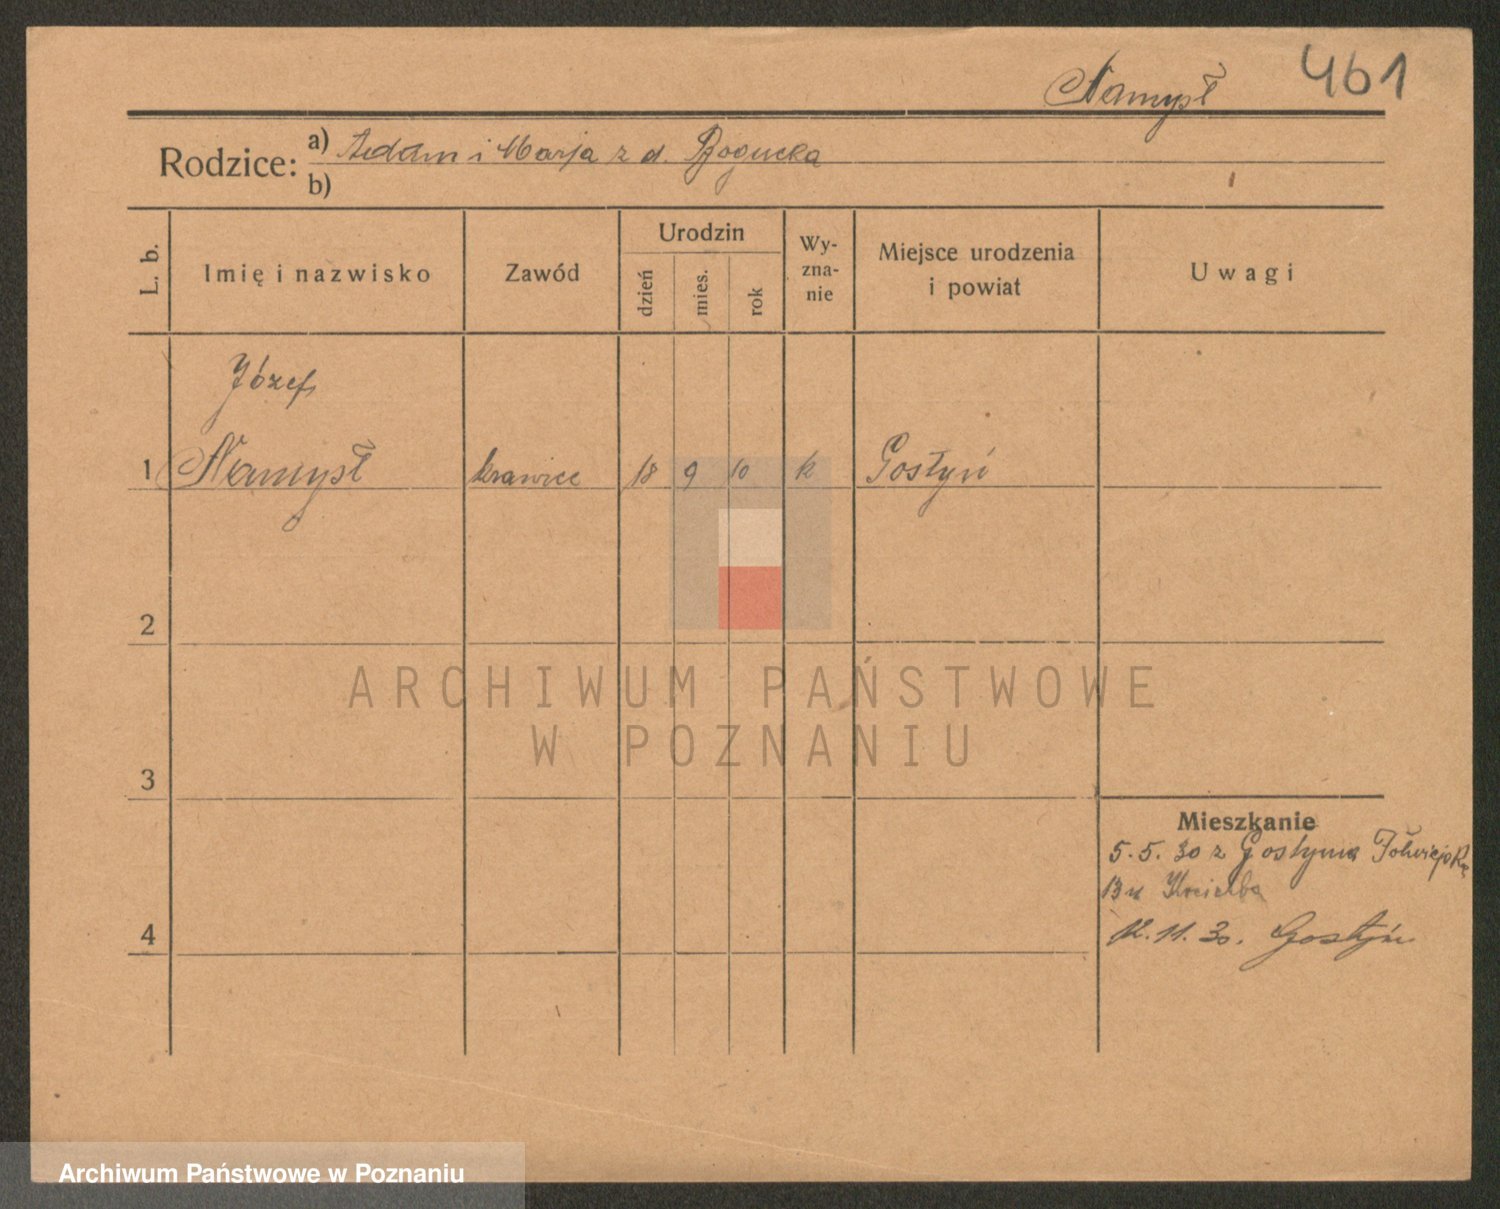 Namysł 461
Rodzice: a) Adam i Marja z d. Bogucka
b)
L. b. Imię i nazwisko Zawód Urodzin dzień mies. rok Wyznanie Miejsce urodzenia i powiat Uwagi
Józef
1 Namysł krawiec 18 9 10 k Gostyń
2
ARCHIWUM PAŃSTWOWE
W POZNANIU
3
Mieszkanie
5.5.30 z Gostynia
13 u
4 12.11.30. Gostyń
Archiwum Państwowe w Poznaniu